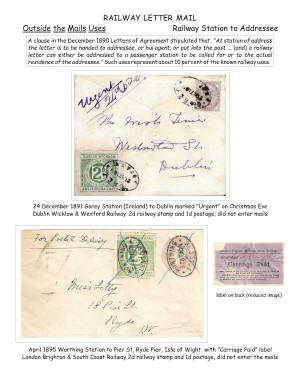 RAILWAY LETTER MAIL
Outside the Mails Uses
Railway Station to Addressee
A clause in the December 1890 Letters of Agreement stipulated that, "At station of address
the letter is to be handed to addressee, or his agent, or put into the post ... (and) a railway
letter can either be addressed to a passenger station to be called for or to the actual
residence of the addressee." Such uses represent about 10 percent of the known railway uses.
Urgent
Dublin
24 December 1891 Gorey Station (Ireland) to Dublin marked "Urgent" on Christmas Eve
Dublin Wicklow & Wexford Railway 2d railway stamp and 1d postage, did not enter mails
For Postal Delivery
Pier St
Ryde
I.W.
Carriage Paid
label on back (reduced image)
April 1895 Worthing Station to Pier St, Ryde Pier, Isle of Wight, with "Carriage Paid" label
London Brighton & South Coast Railway 2d railway stamp and 1d postage, did not enter the mails